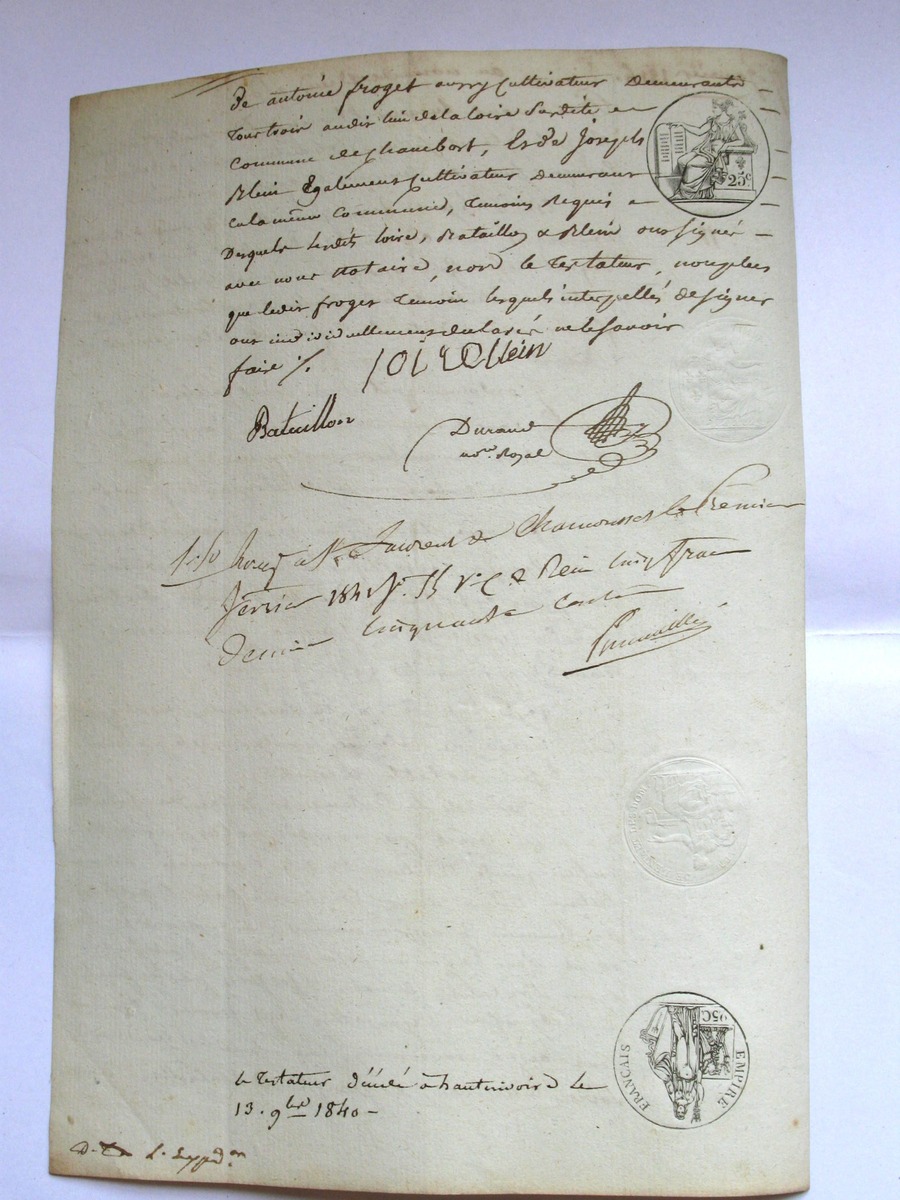 De antoine froget aussy cultivateur Demeurants
tous trois audit lieu de la loire Susdite
Commune de chambost, Et de Joseph
Klein Egalement cultivateur Demeurant
en la même Commune, temoins Requis
Desquels lesdits loire, Bataillon & Klein ont signé
avec nous Notaire, non le Testateur, non plus
que ledit froget temoin lesquels interpellés de signer
ont individuellement declaré ne le savoir
faire
Klein
Bataillon
Durand
no.re Royal
25c
à St Laurent de Chamousset le Premier
Février 1841 f.o 55 v.o C. 2 Reçu cinq francs
Decime cinquante centimes
EMPIRE FRANÇAIS
le Testateur décédé à hauterivoire le
13. 9bre 1840